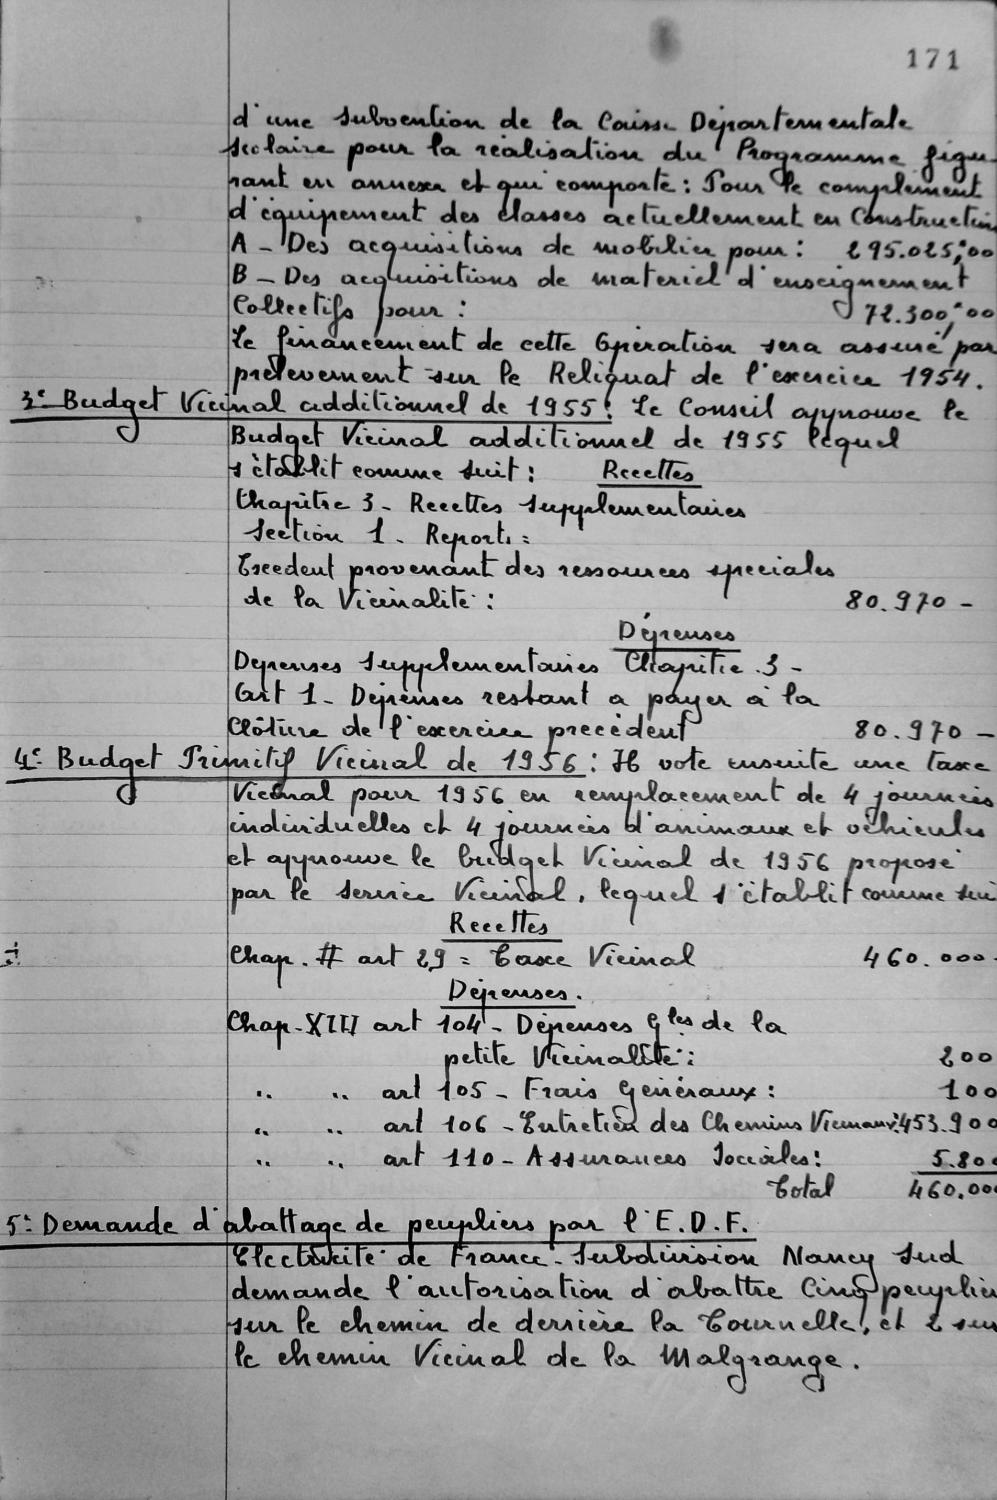 171
d'une subvention de la Caisse Départementale
scolaire pour la réalisation du Programme figu-
rant en annexe et qui comporte : Pour le complément
d'équipement des classes actuellement en Construction
A - Des acquisitions de mobilier pour : 295.025,00
B - Des acquisitions de matériel d'enseignement
Collectifs pour : 72.300,00
Le financement de cette Opération sera assuré par
prélevement sur le Reliquat de l'exercice 1954.
3° Budget Vicinal additionnel de 1955 : Le Conseil approuve le
Budget Vicinal additionnel de 1955 lequel
s'établit comme suit : Recettes
Chapitre 3 - Recettes Supplementaires
Section 1 - Reports :
Excedent provenant des ressources speciales
de la Vicinalité : 80.970 -
Dépenses
Depenses Supplementaires Chapitre 3 -
Art 1 - Dépenses restant a payer à la
Clôture de l'exercice precédent 80.970 -
4° Budget Primitif Vicinal de 1956 : Il vote ensuite une taxe
Vicinal pour 1956 en remplacement de 4 journées
individuelles et 4 journées d'animaux et véhicules
et approuve le budget Vicinal de 1956 proposé
par le Service Vicinal, lequel s'établit comme sui
Recettes
Chap. # art 29 = Taxe Vicinal 460.000 -
Dépenses.
Chap. XIII art 104 - Dépenses Gles de la
petite Vicinalité : 200
" " art 105 - Frais Généraux : 100
" " art 106 - Entretien des Chemins Vicinaux : 453.900
" " art 110 - Assurances Sociales : 5.800
Total 460.000
5° Demande d'abattage de peupliers par l'E.D.F.
Electricité de France - Subdivision Nancy Sud
demande l'autorisation d'abattre Cinq peuplier
sur le chemin de derrière la Tournelle, et 2 sur
le chemin Vicinal de la Malgrange.